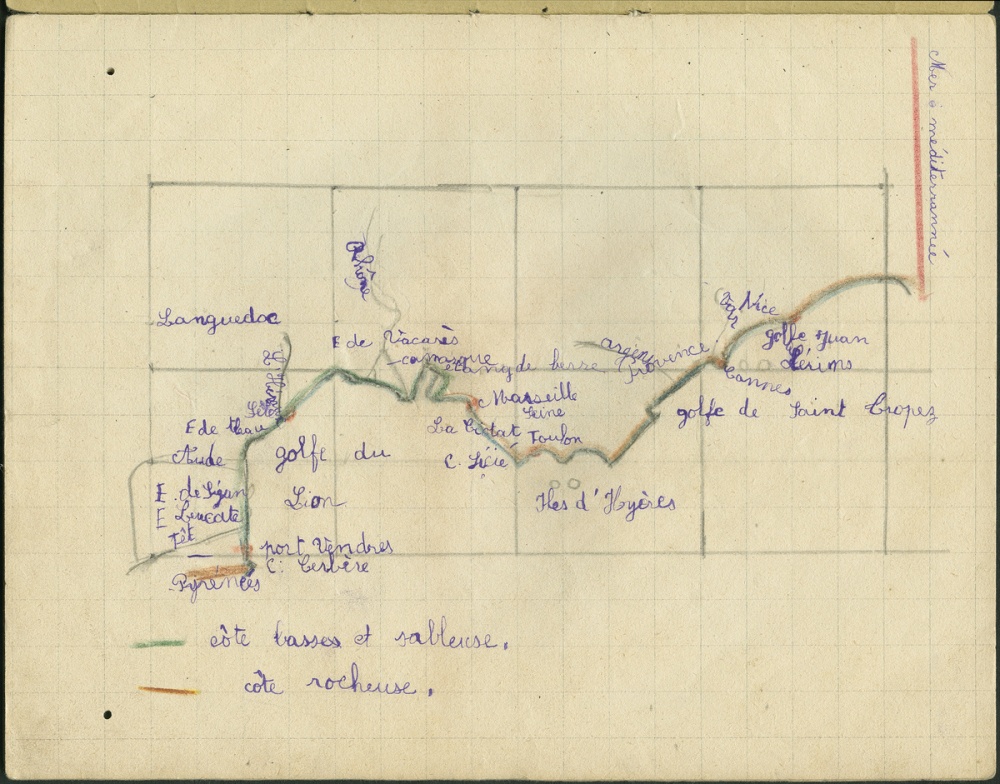 Mer méditerrannée
Rhône
Languedoc
L'Hérault
E de Vacarès
camargue
étang de berre
argens
provence
Var
Nice
golfe Juan
Lérims
Cannes
golfe de Saint Tropez
Marseille
Seine
La Ciotat Toulon
C. Sicié
Iles d'Hyères
Sète
E de thau
Aude
golfe du
Lion
E. de Sigan
E Leucate
Têt
port Vendres
C. Cerbère
Pyrénées
côte basses et sableuse.
côte rocheuse.